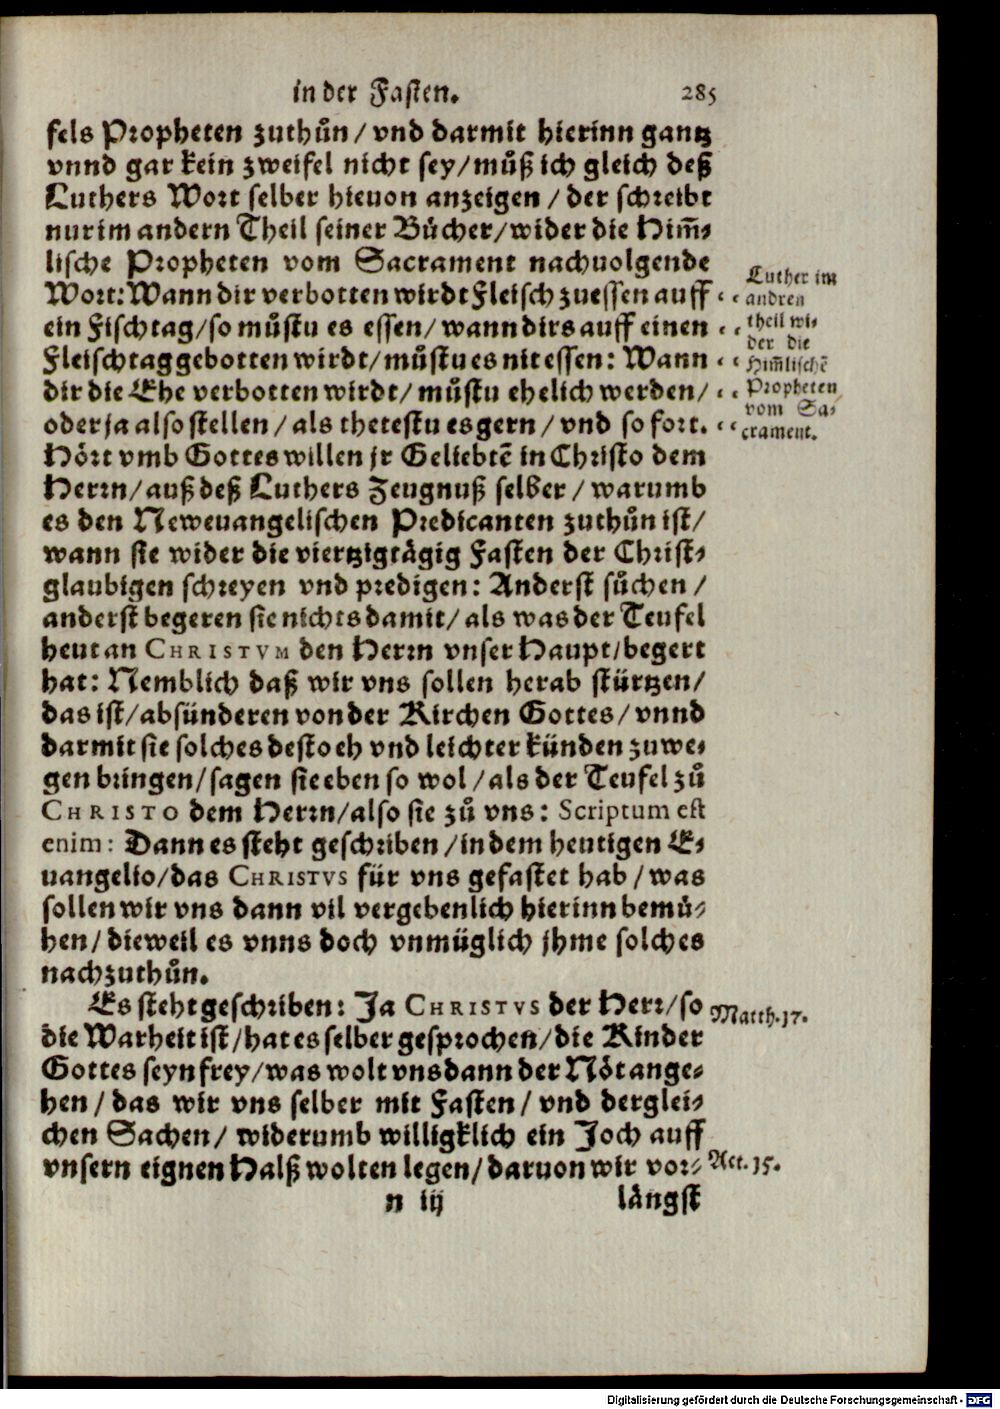 in der Fasten. 285
fels Propheten zuthůn / vnd darmit hierinn gantz
vnnd gar kein zweifel nicht sey / můß ich gleich deß
Luthers Wort selber hieuon anzeigen / der schreibt
nur im andern Theil seiner Bůcher / wider die Him̃⸗
lische Propheten vom Sacrament nachuolgende
Wort: Wann dir verbotten wirdt Fleisch zuessen auff
ein Fischtag / so můstu es essen / wann dirs auff einen
Fleischtag gebotten wirdt / můstu es nit essen: Wann
dir die Ehe verbotten wirdt / můstu ehelich werden /
oder ja also stellen / als thetestu es gern / vnd so fort.
Luther im
andren
theil wi⸗
der die
Him̃lischẽ
Propheten
vom Sa⸗
crament.
Hört vmb Gottes willen jr Geliebtẽ in Christo dem
Herrn / auß deß Luthers Zeugnuß selber / warumb
es den Neweuangelischen Predicanten zuthůn ist /
wann sie wider die viertzigtägig Fasten der Christ⸗
glaubigen schreyen vnd predigen: Anderst sůchen /
anderst begeren sie nichts damit / als was der Teufel
heut an CHRISTVM den Herrn vnser Haupt / begert
hat: Nemblich daß wir vns sollen herab stürtzen /
das ist / absünderen von der Kirchen Gottes / vnnd
darmit sie solches desto eh vnd leichter künden zuwe⸗
gen bringen / sagen sie eben so wol / als der Teufel zů
CHRISTO dem Herrn / also sie zů vns: Scriptum est
enim: Dann es steht geschriben / in dem heutigen E⸗
uangelio / das CHRISTVS für vns gefastet hab / was
sollen wir vns dann vil vergebenlich hierinn bemů⸗
hen / dieweil es vnns doch vnmüglich jhme solches
nachzuthůn.
Es steht geschriben: Ja CHRISTVS der Herr / so
Matth. 17.
die Warheit ist / hat es selber gesprochen / die Kinder
Gottes seyn frey / was wolt vns dann der Nöt ange⸗
hen / das wir vns selber mit Fasten / vnd derglei⸗
chen Sachen / widerumb willigklich ein Joch auff
vnsern eignen Halß wolten legen / daruon wir vor⸗
Act. 15.
n iij längst
Digitalisierung gefördert durch die Deutsche Forschungsgemeinschaft - DFG